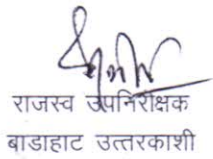 राजस्व उपनिरीक्षक
बाडाहाट उत्तरकाशी